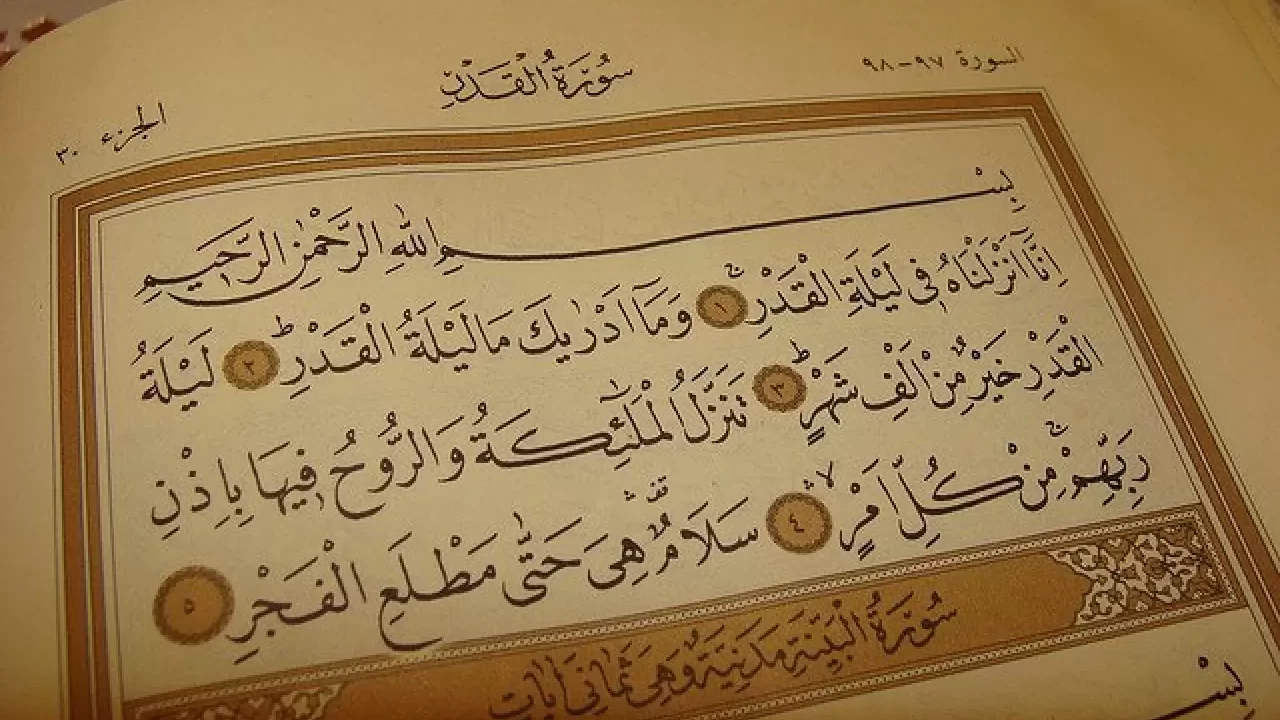 السورة ٩٧-٩٨
سُورَةُ الْقَدْرِ
الجزء ٣٠
بِسْمِ اللّٰهِ الرَّحْمٰنِ الرَّحِيمِ
اِنَّٓا اَنْزَلْنَاهُ فٖى لَيْلَةِ الْقَدْرِۚ ﴿١﴾ وَمَٓا اَدْرٰيكَ مَا لَيْلَةُ الْقَدْرِؕ ﴿٢﴾ لَيْلَةُ
الْقَدْرِ خَيْرٌ مِنْ اَلْفِ شَهْرٍؕ ﴿٣﴾ تَنَزَّلُ الْمَلٰٓئِكَةُ وَالرُّوحُ فٖيهَا بِاِذْنِ
رَبِّهِمْۚ مِنْ كُلِّ اَمْرٍۙۛ ﴿٤﴾ سَلَامٌ۠ۛ هِىَ حَتّٰى مَطْلَعِ الْفَجْرِ ﴿٥﴾
سُورَةُ الْبَيِّنَةِ مَدَنِيَّةٌ وَهِىَ ثَمَانِى اٰيَاتٍ
بِسْـ